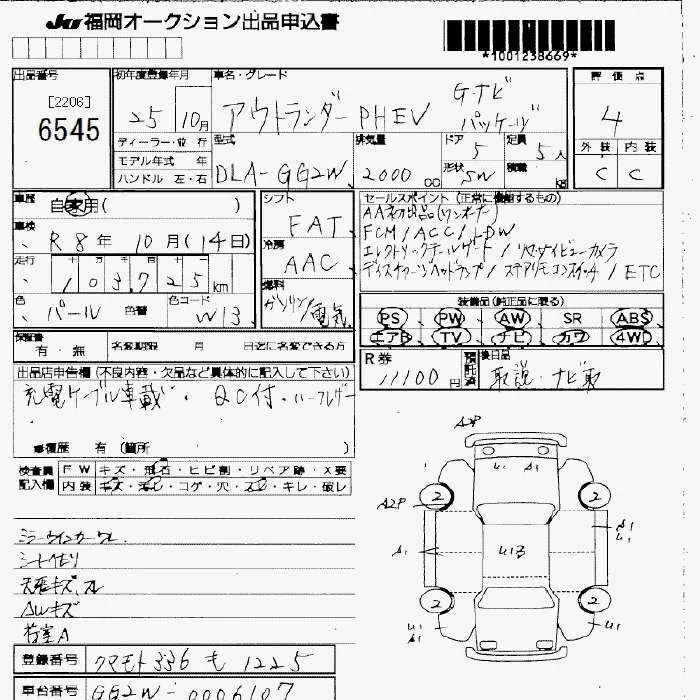 JU 福岡オークション出品申込書
*1001238669*
出品番号 初年度登録年月 車名・グレード 評価点
[2206]
6545
25 10月 アウトランダーPHEV G・ナビパッケージ 4
ディーラー・並行 型式 排気量 ドア 定員 外装 内装
モデル年式 年 5 5人 C C
ハンドル 左・右 DLA-GG2W 2000cc 形状 SW 積載 kg
車歴 自家用( ) シフト FAT セールスポイント(正常に機能するもの)
AAネ初出品(ワンオーナー)
車検 R8年 10月(14日) FCM/ACC/LDW
走行 十万 万 千 百 十 冷房 AAC エレクトリックテールゲート/リヤビューカメラ
103,725km ディスチャージヘッドランプ/ステアリモコンスイッチ/ETC
燃料 ガソリン/電気
色 パール 色替 色コード W13 装備品(純正品に限る)
PS PW AW SR ABS
エアB TV ナビ カワ 4WD
保証書 有・無 名変期限 月 日迄に名変できる方
R券 11100円 預託済 後日品 取説・ナビ取
出品店申告欄(不良内容・欠品など具体的に記入して下さい)
充電ケーブル車載・QC付・
修復歴 有(箇所 )
検査員記入欄 FW キズ・飛石・ヒビ割・リペア跡・X要
内装 キズ・汚レ・コゲ・穴・スレ・キレ・破レ
ミラーウインカーワレ
シートヘタリ
天張キズ、スレ
AWキズ
荷室A
A2P
U1 A1
2 2
A2P
A1 U1
A1 U1B
2 2
U1 A1 U1
登録番号 クマモト 336 も 1225
車台番号 GG2W-0006107